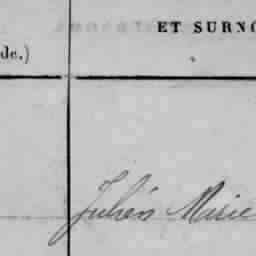 ET SURNO
de.)
Julien Marie